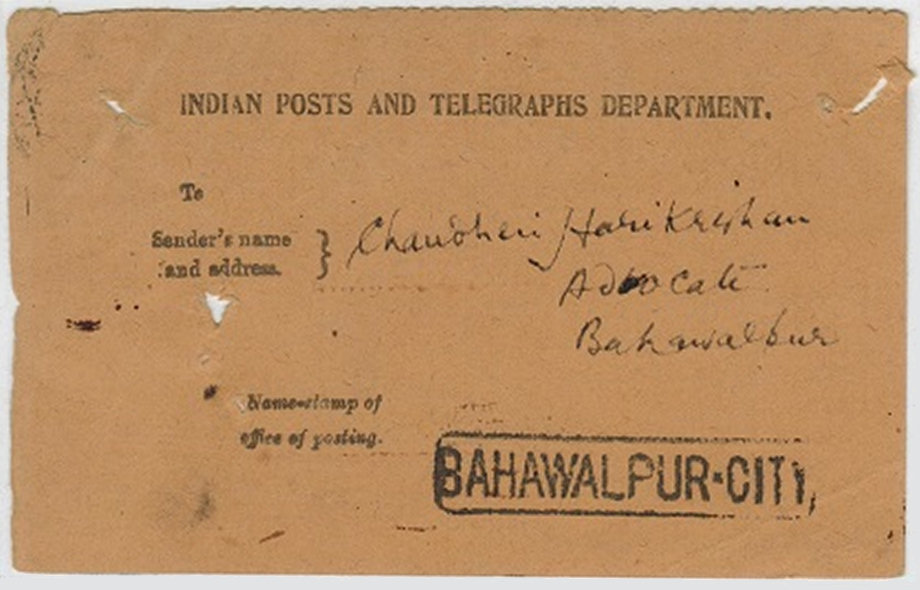 INDIAN POSTS AND TELEGRAPHS DEPARTMENT.
To
Sender's name
and address. } Chaudheri Hari Krishan
Advocate
Bahawalpur
Name-stamp of
office of posting.
BAHAWALPUR-CITY